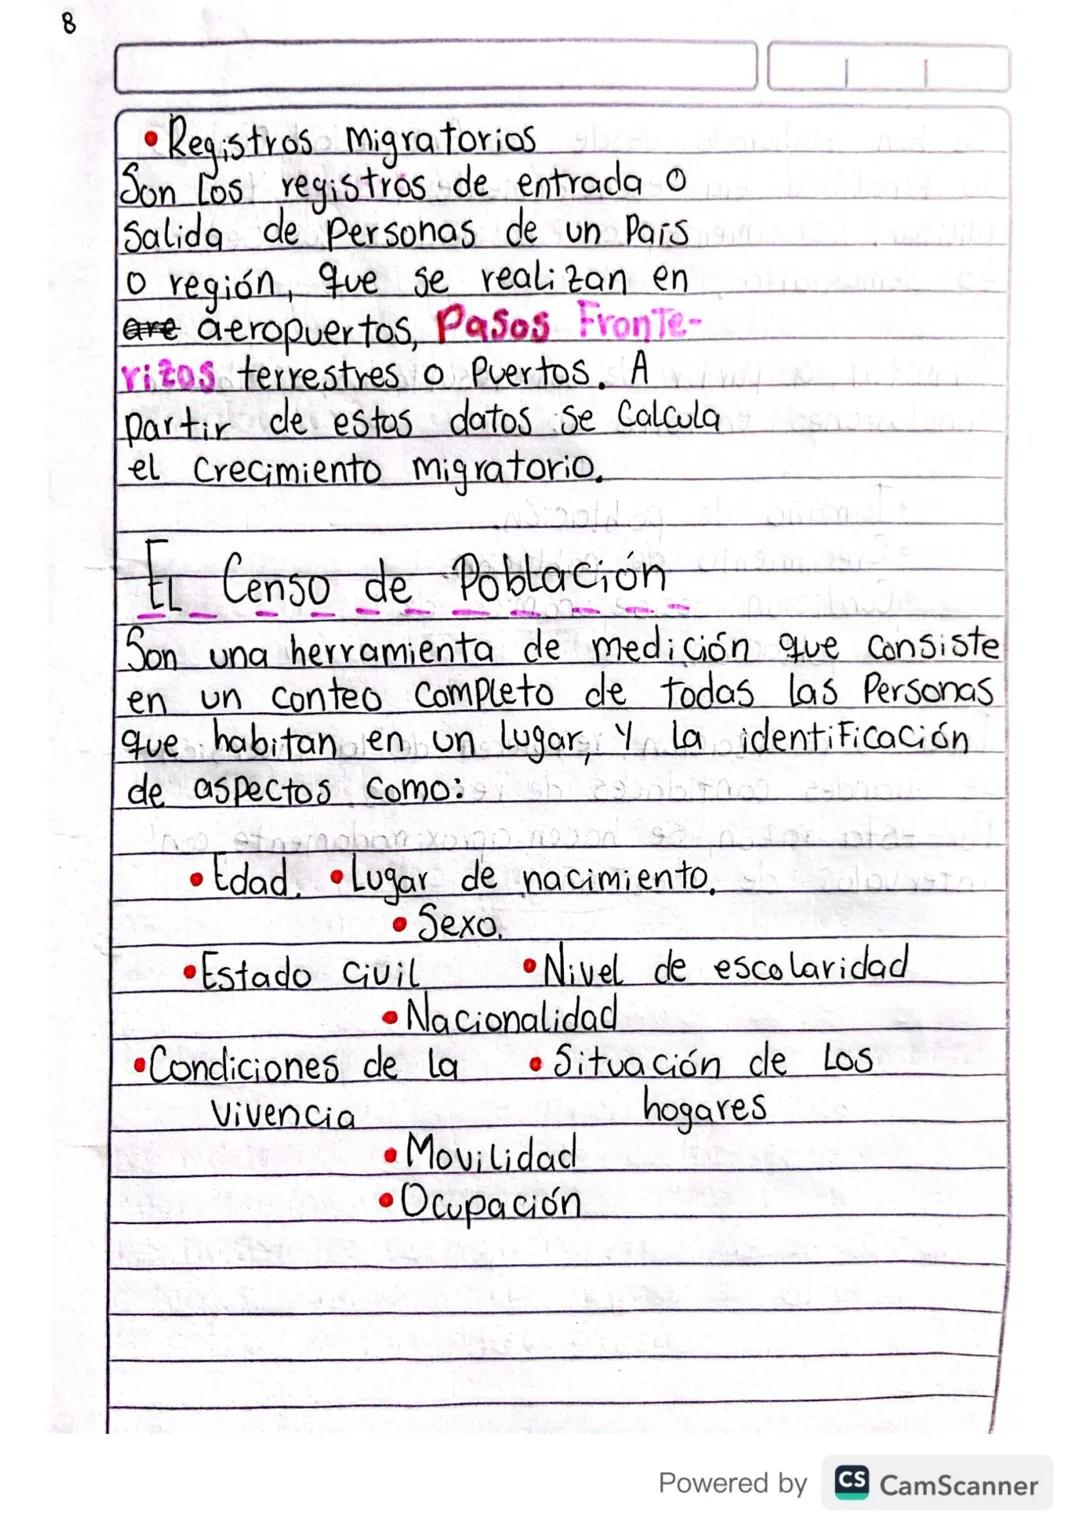 8
• Registros Migratorios
Son Los registros de entrada o
Salida de Personas de un País
o región, que se realizan en
are aeropuertos, Pasos Fronte-
rizos terrestres o Puertos. A
partir de estos datos se Calcula
el Crecimiento migratorio.
EL Censo de Población
Son una herramienta de medición que consiste
en un conteo Completo de todas las Personas
que habitan en un lugar, Y la identificación
de aspectos Como:
• Edad. • Lugar de nacimiento.
• Sexo.
• Estado Civil • Nivel de escolaridad
• Nacionalidad
• Condiciones de la • Situación de Los
vivencia hogares
• Movilidad
• Ocupación
Powered by CS CamScanner